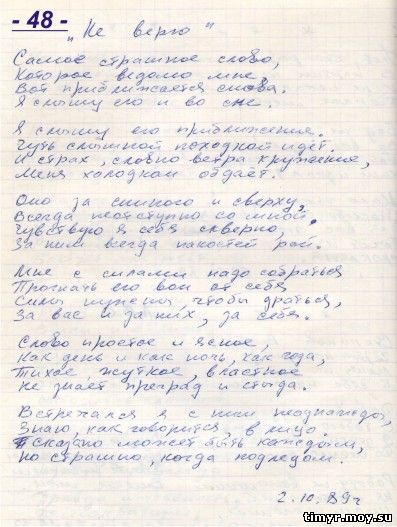 - 48 -
„Не верю"
Самое страшное слово,
Которое ведомо мне,
Вот приближается снова.
Я слышу его и во сне.
Я слышу его приближение.
Чуть слышной походкой идёт.
И страх, словно ветра кружение,
Меня холодком обдаёт.
Оно за спиной и сверху,
Всегда неотступно со мной,
Чувствую я себя скверно,
За ним всегда пакостей рой.
Мне с силами надо собраться
Прогнать его вон от себя
Силы нужны, чтобы драться,
За вас и за них, за себя.
Слово простое и ясное,
Как день и как ночь, как года,
Тихое, жуткое, властное
Не знает преград и стыда.
Встречался я с ним неоднажды,
Знаю, как говорится, в лицо.
сказано может быть каждым,
Но страшно, когда подлецом.
2.10.89г
timyr.moy.su